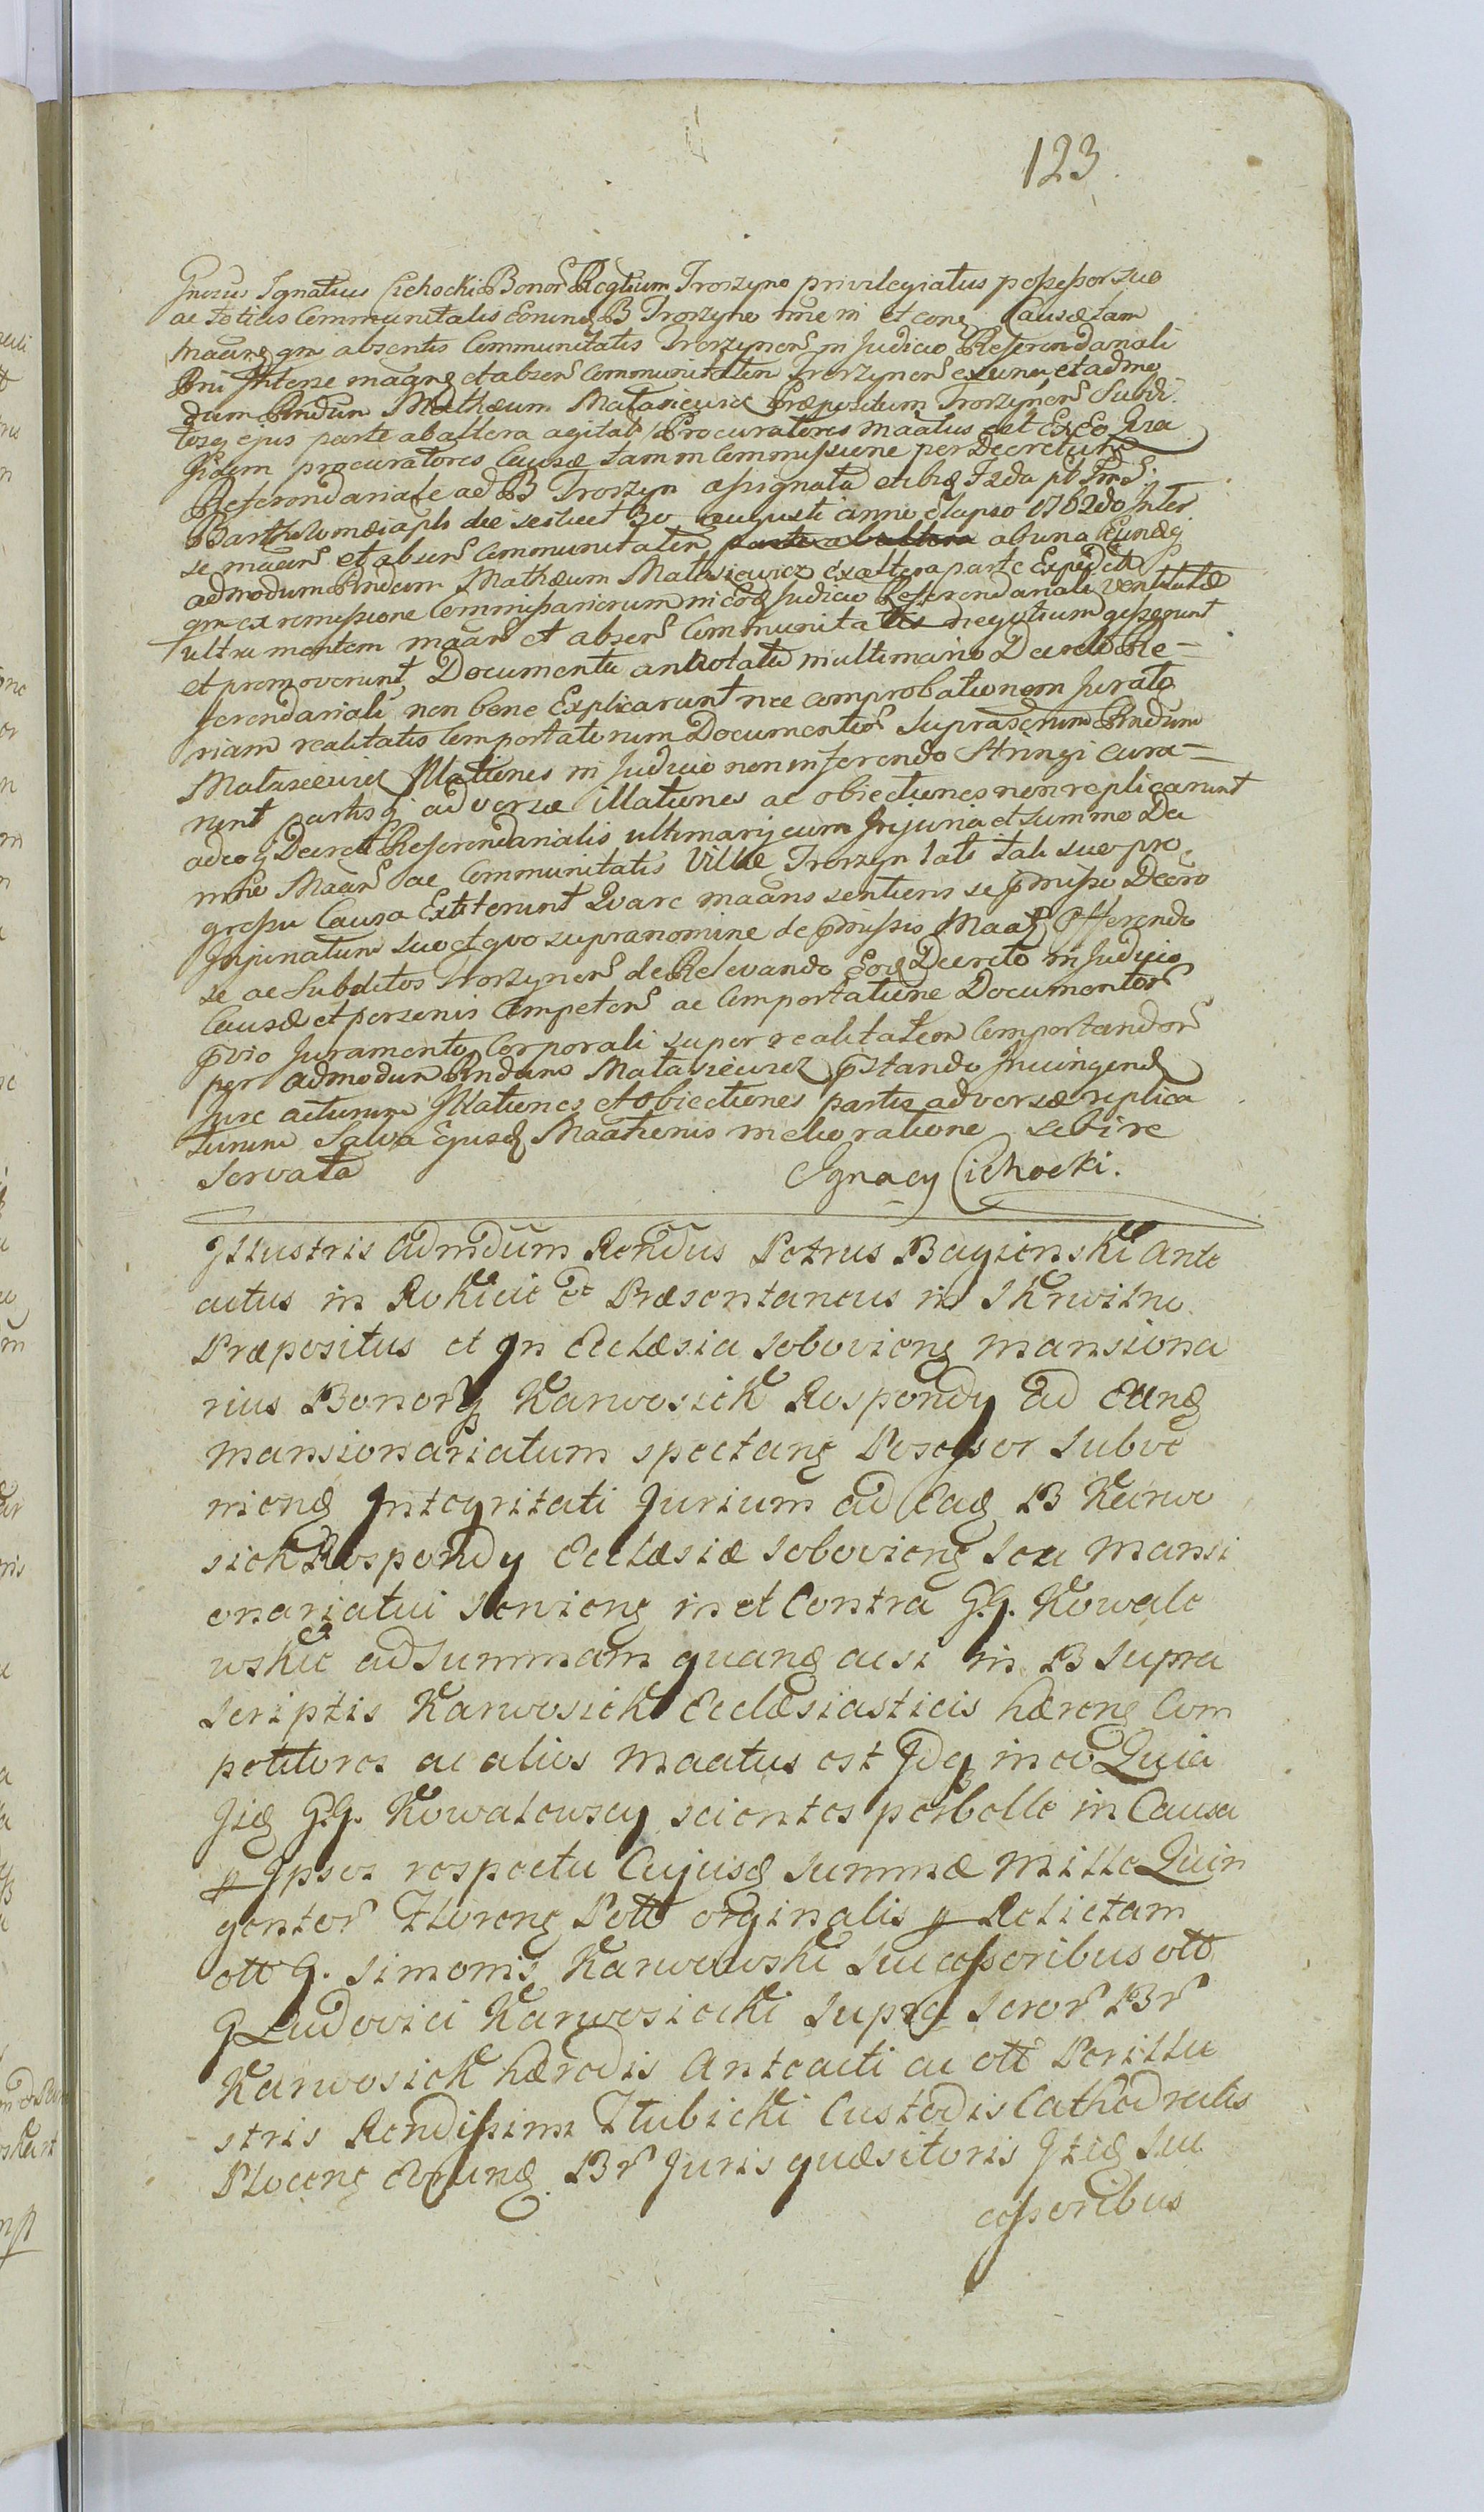 123.
Gnosus Ignatius Cichocki Bonor Regtium Troszyno privilegiatus possessor suo
ac totius Communitatis Eorund B Troszyno nne in et cong Causæ tam
Maang qm absentis Communitatis Troszynens in Judicio Referendariali
Rni Interse maang et absens Communitatem Troszynens ex una et admo
dum Rndum Mathæum Matasiewicz Præpositum Troszynens Subdi
tosq ejus parte ab altera agitat Procuratores maatus est Ex Eo Qia
Jidem procuratores Causæ tam in Commissione per Decretum
Referendariale ad B Troszyn assignata et ibid F2da pt Fms S.
Barthilomæi apls die scilicet 30 augusti anni elapso 1762do Inter
se maans et absens Communitatem parte ab altera ab una Eundq
admodum Rndum Mathæum Matasiewicz ex altera parte Expedita
qm ex remissione Commissariorum in Eod Judicio Referendariali ventilatæ
ultra mentem maans et absens Communitatis negotium gesserunt
et promoverunt Documenta antiotata in ultimario Decreto Re-
ferendariali non bene Explicarunt nec comprobationem Jurato
riam realitatis Comportatorum Documentor suprascrum Rndum
Matasiewicz Illationes in Judicio non inferendo Stringi cura-
runt partisq adversæ illationes ac obiectiones non replicarunt
adeoq Decreti Referendarialis ultimarij cum Injuria et summo Da
mno Maans ac Communitatis Villæ Troszyn lati tali suo pro
gressu Causa Extiterunt Qvare maans sentiens se pmisso Decro
Injuriatum suo et qvo supra nomine de pmissis Maatq Offerendo
se ac Subditos Troszynens de Relevando Eod Decreto in Judicio
Causæ et personis Competens ac Comportatione Documentor
pvio Juramento Corporali super realitatem Comportandor
per admodum Rndum Matasiewicz pstando Iniungend
Jure acturum Illationes et obiectiones partis adversæ replica
turum Salva Ejusd Maatienis melioratione sibi re
servata
Ignacy Cichocki.
Illustris Admdum Rendus Petrus Bagienski Ante
actus in Rokicie et Præsentaneus in Skrwilno
Præpositus et In Ecclæsia Sobovieng Mansiona
rius Bonorq Karwosiek Rospondy ad Eung
Mansionariatum spectang Posessor Subve
niend Integritati Jurium ad Eag B Karwo
siek Rospondy Ecclæsiæ Sobovieng seu Mansi
onariatui servieng in et Contra G.G. Kowale
wskie ad Summam quang acsi in B Supra
scriptis Karwosiek Ecclæsiasticis hæreng Com
petitores ac alios Maatus est Idq in eo Quia
Jid G.G. Kowalewscy scientes perbelle in Causa
p Ipsos respectu Cujusd Summæ Mille Quin
gentor Floreng Poll orginalis p Relictam
olt G. Simonis Karwowski Successoribus olt
G Ludovici Karwosiecki Supra Scror Br
Karwosiek hæredis Anteacti ac olt Perillu
stris Rendissimi Hlubicki Custodis Cathedralis
Ploceng Eorung Br Juris quæsitoris Jtid Suc
cessoribus